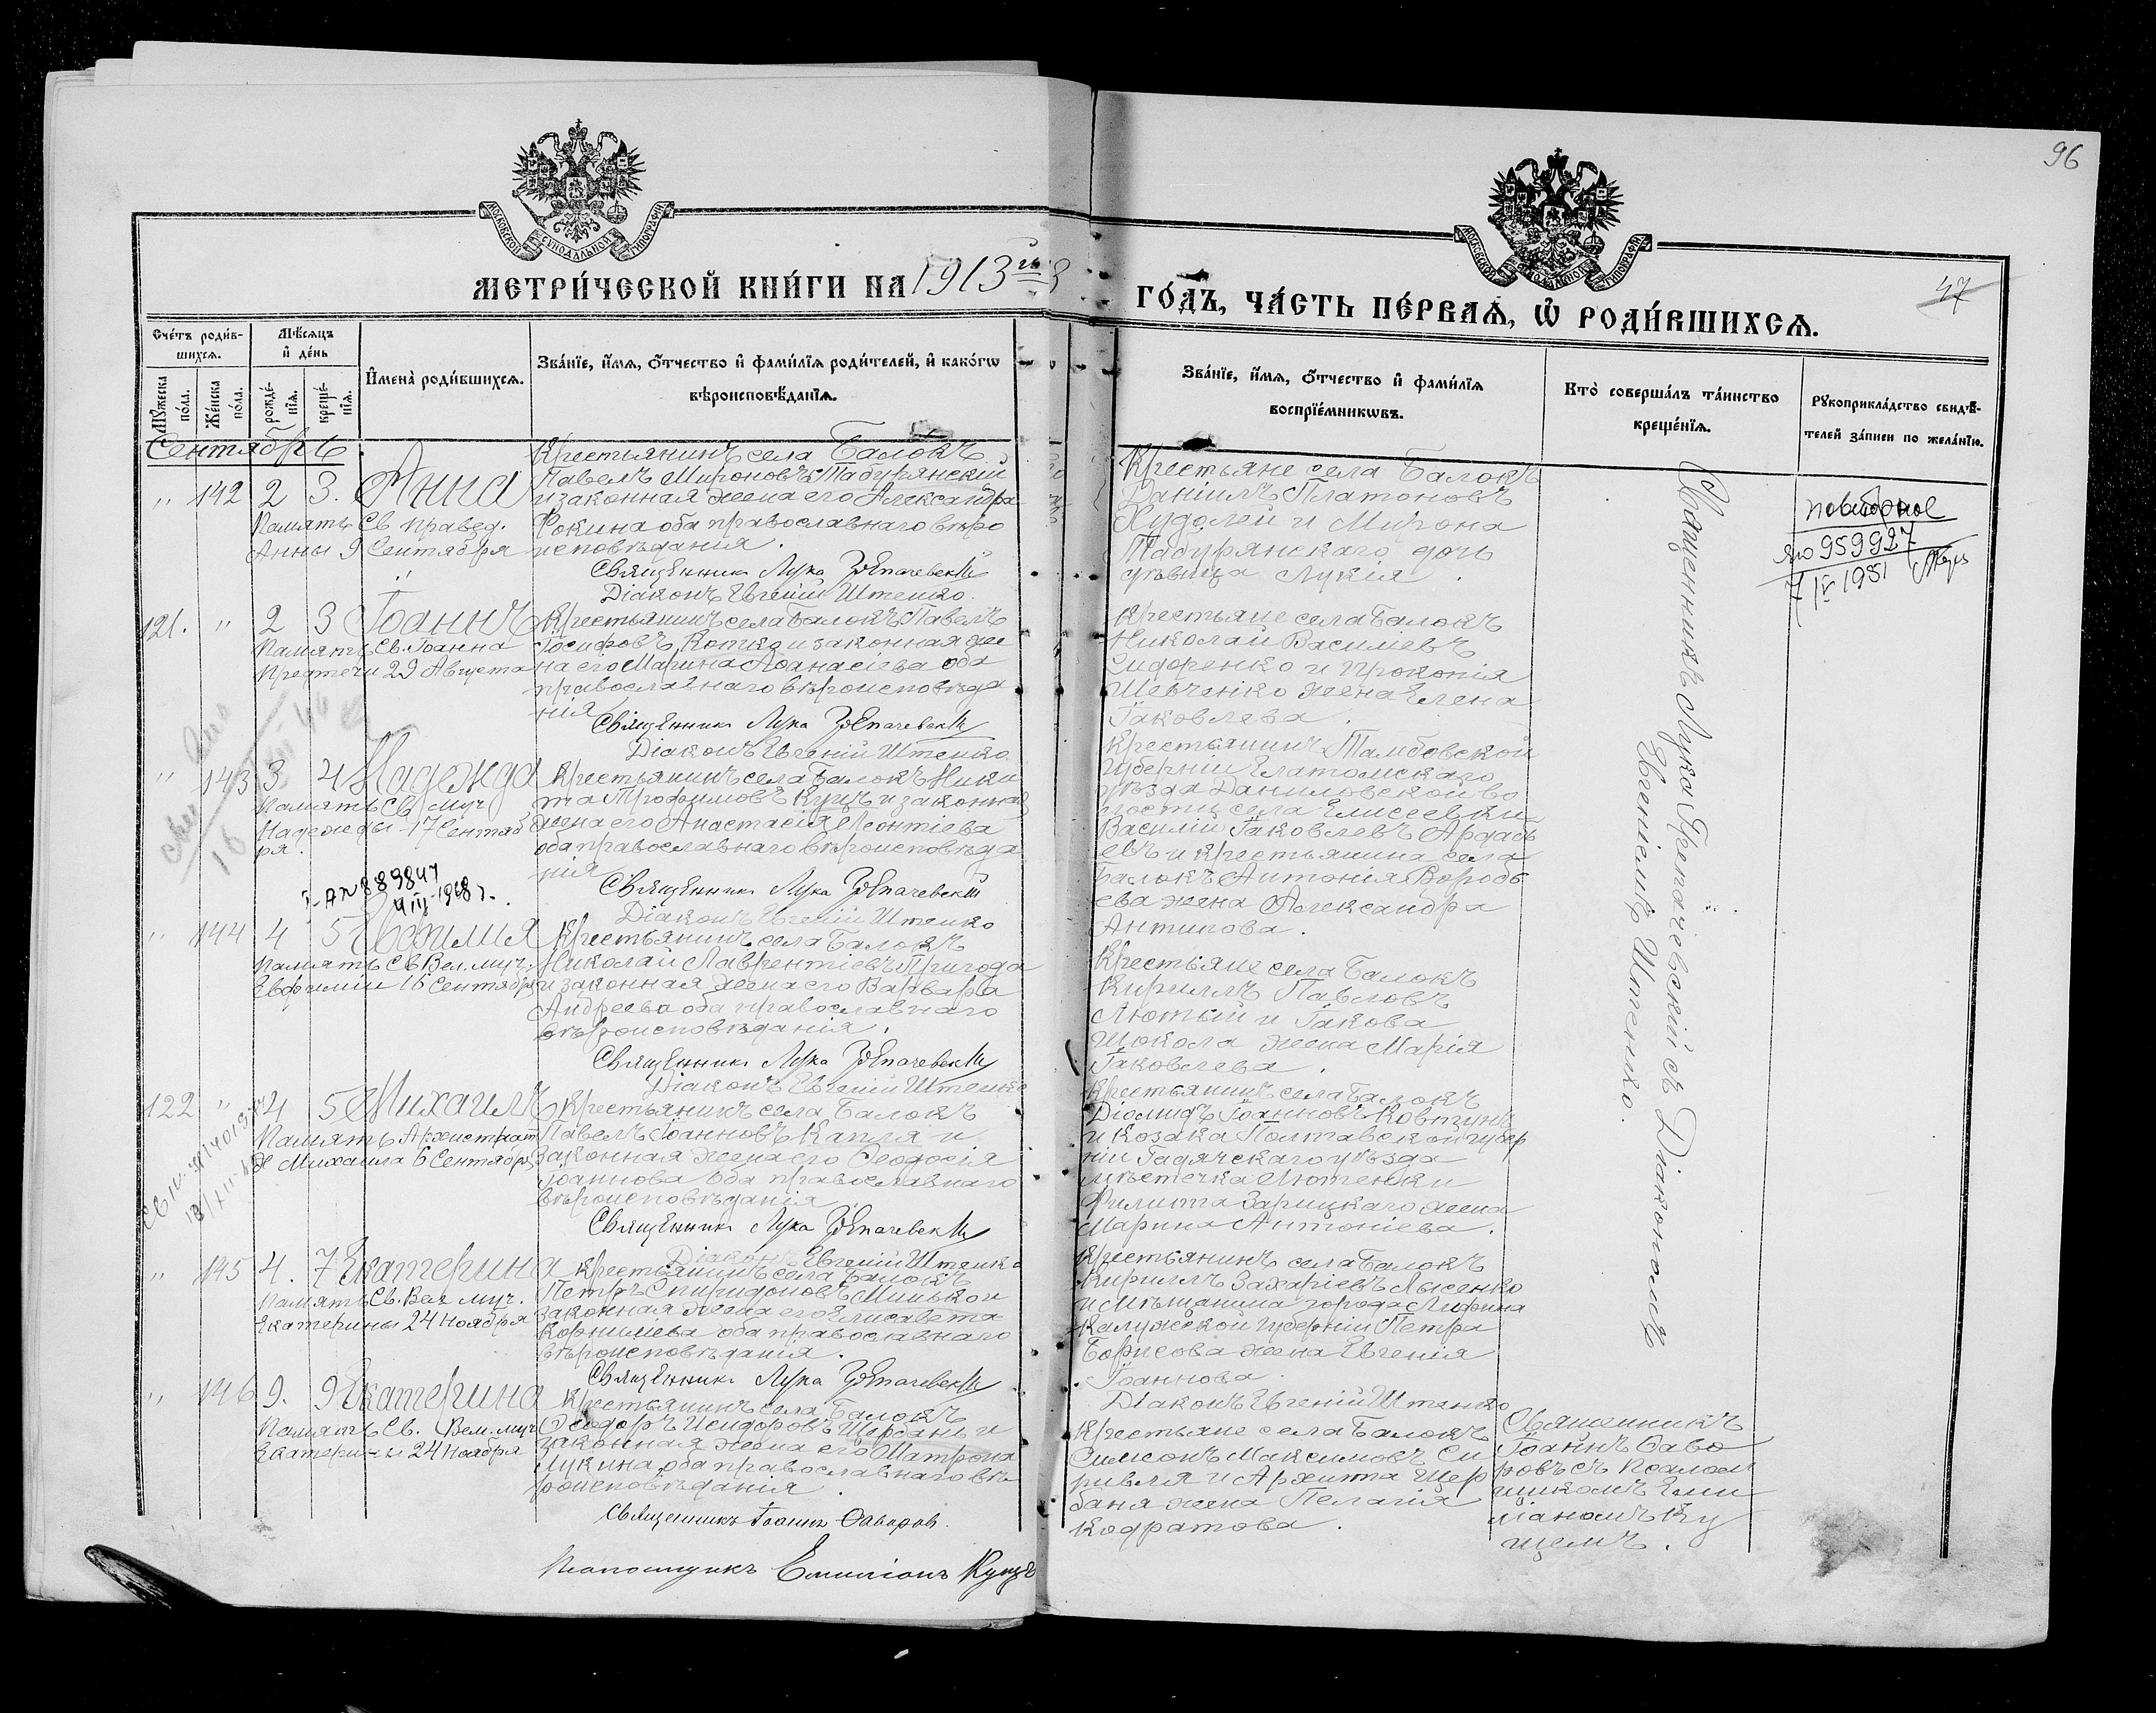 96
47
МОСКОВСКОЙ СѴНОДАЛЬНОЙ ТИПОГРАФІИ
МОСКОВСКОЙ СѴНОДАЛЬНОЙ ТИПОГРАФІИ
МЕТРИ́ЧЕСКОЙ КНИ́ГИ НА 1913й
ГО́ДЪ, ЧА́СТЬ ПЕ́РВАѦ, Ѡ҆ РОДИ́ВШИХСѦ.
Сче́тъ роди́в-
шихсѧ.
Мѣ́сѧцъ
и҆ де́нь
Мꙋ́жеска
по́ла.
Же́нска
по́ла.
рожде́-
нїѧ.
креще́-
нїѧ.
И҆мена̀ роди́вшихсѧ.
Зва́нїе, и҆́мѧ, ѻ҆́тчество и҆ фами́лїѧ роди́телей, и҆ како́гѡ
вѣроисповѣ́данїѧ.
Зва́нїе, и҆́мѧ, ѻ҆́тчество и҆ фами́лїѧ
воспрїе́мникѡвъ.
Кто̀ соверша́лъ та́инство
креще́нїѧ.
Рꙋкоприкла́дство свидѣ́-
телей за́писи по жела́нїю.
Сентябрь
" 142 2 3. Анна
Память Св. правед.
Анны 9 Сентября
Крестьянинъ села Балокъ
Павелъ Мироновъ Табурянский
и законная жена его Александра
Фокина оба православнаго вѣро
исповѣданія.
Священникъ Лука Грепачевскій
Діаконъ Евгеній Штепко.
Крестьяне села Балокъ
Даніилъ Платоновъ
Худолей и Мирона
Табурянскаго дочь
дѣвица Лукія.
повторное
959927
IV 1951
121. " 2 3 Іоаннъ
Память Св. Іоанна
Предтечи 29 Августа
Крестьянинъ села Балокъ Павелъ
Іосифовъ Котко и законная же
на его Марина Аѳанасіева оба
православнаго вѣроисповѣда
нія
Священникъ Лука Грепачевскій
Діаконъ Евгеній Штепко
Крестьяне села Балокъ
Николай Василіевъ
Сидоренко и Прокопія
Шевченко жена Елена
Іаковлева.
" 143 3 4 Надежда
Память Св. муч.
Надежды 17 Сентяб
ря.
Крестьянинъ села Балокъ Ники
та Трофимовъ Куцъ и законная
жена его Анастасія Леонтіева
оба православнаго вѣроисповѣда
нія
Священникъ Лука Грепачевскій
Діаконъ Евгеній Штепко
Крестьянинъ Тамбовской
губерніи Елатомскаго
уѣзда Даниловской во
лости села Елисеевки
Василій Іаковлевъ Ардабь
евъ и крестьянина села
Балокъ Антонія Воробь
ева жена Александра
Антипова.
889847
III-1968 г.
" 144 4 5 Евфимія
Память Св. Вел. муч.
Евфиміи 16 Сентября
Крестьянинъ села Балокъ
Николай Лаврентіевъ Пригода
и законная жена его Варвара
Андреева оба православнаго
вѣроисповѣданія.
Священникъ Лука Грепачевскій
Діаконъ Евгеній Штепко
Крестьяне села Балокъ
Кириллъ Павловъ
Лютый и Іакова
Шокола жена Марія
Іаковлева.
122 " 4 5 Михаилъ
Память Архистрат
Михаила 6 Сентября
Крестьянинъ села Балокъ
Павелъ Іоанновъ Капля и
законная жена его Ѳеодосія
Іоаннова оба православнаго
вѣроисповѣданія
Священникъ Лука Грепачевскій
Діаконъ Евгеній Штепко
Крестьянинъ села Балокъ
Діомидъ Іоанновъ Ковтунъ
и козака Полтавской губер
ніи Гадячскаго уѣзда
мѣстечка Лютеньки
Филиппа Зарицкаго жена
Марина Антоніева.
" 145 4. 7 Екатерина
Память Св. Вел. муч.
Екатерины 24 Ноября
Крестьянинъ села Балокъ
Петръ Спиридоновъ Минько и
законная жена его Елисавета
Корниліева оба православнаго
вѣроисповѣданія.
Священникъ Лука Грепачевскій
Діаконъ Евгеній Штепко
Крестьянинъ села Балокъ
Кириллъ Захаріевъ Лысенко
и Мѣщанина города
Калужской губерніи Петра
Борисова жена Евгенія
Іоаннова.
Священникъ Лука Грепачевскій съ Діакономъ
Евгеніемъ Штепко.
" 146 9. 9 Екатерина
Память Св. Вел. муч
Екатерины 24 Ноября
Крестьянинъ села Балокъ
Ѳеодоръ Исидоровъ Щербань и
законная жена его Матрона
Лукина оба православнаго вѣ
роисповѣданія.
Священникъ Іоаннъ Ѳаворов.
Псаломщикъ Емиліанъ Куцъ
Крестьяне села Балокъ
Симеонъ Максимовъ Си
ривля и Архипа Щер
баня жена Пелагія
Кодратова.
Священникъ
Іоаннъ Ѳаво
ровъ съ псалом
щикомъ Еми
ліаномъ Ку
цемъ.